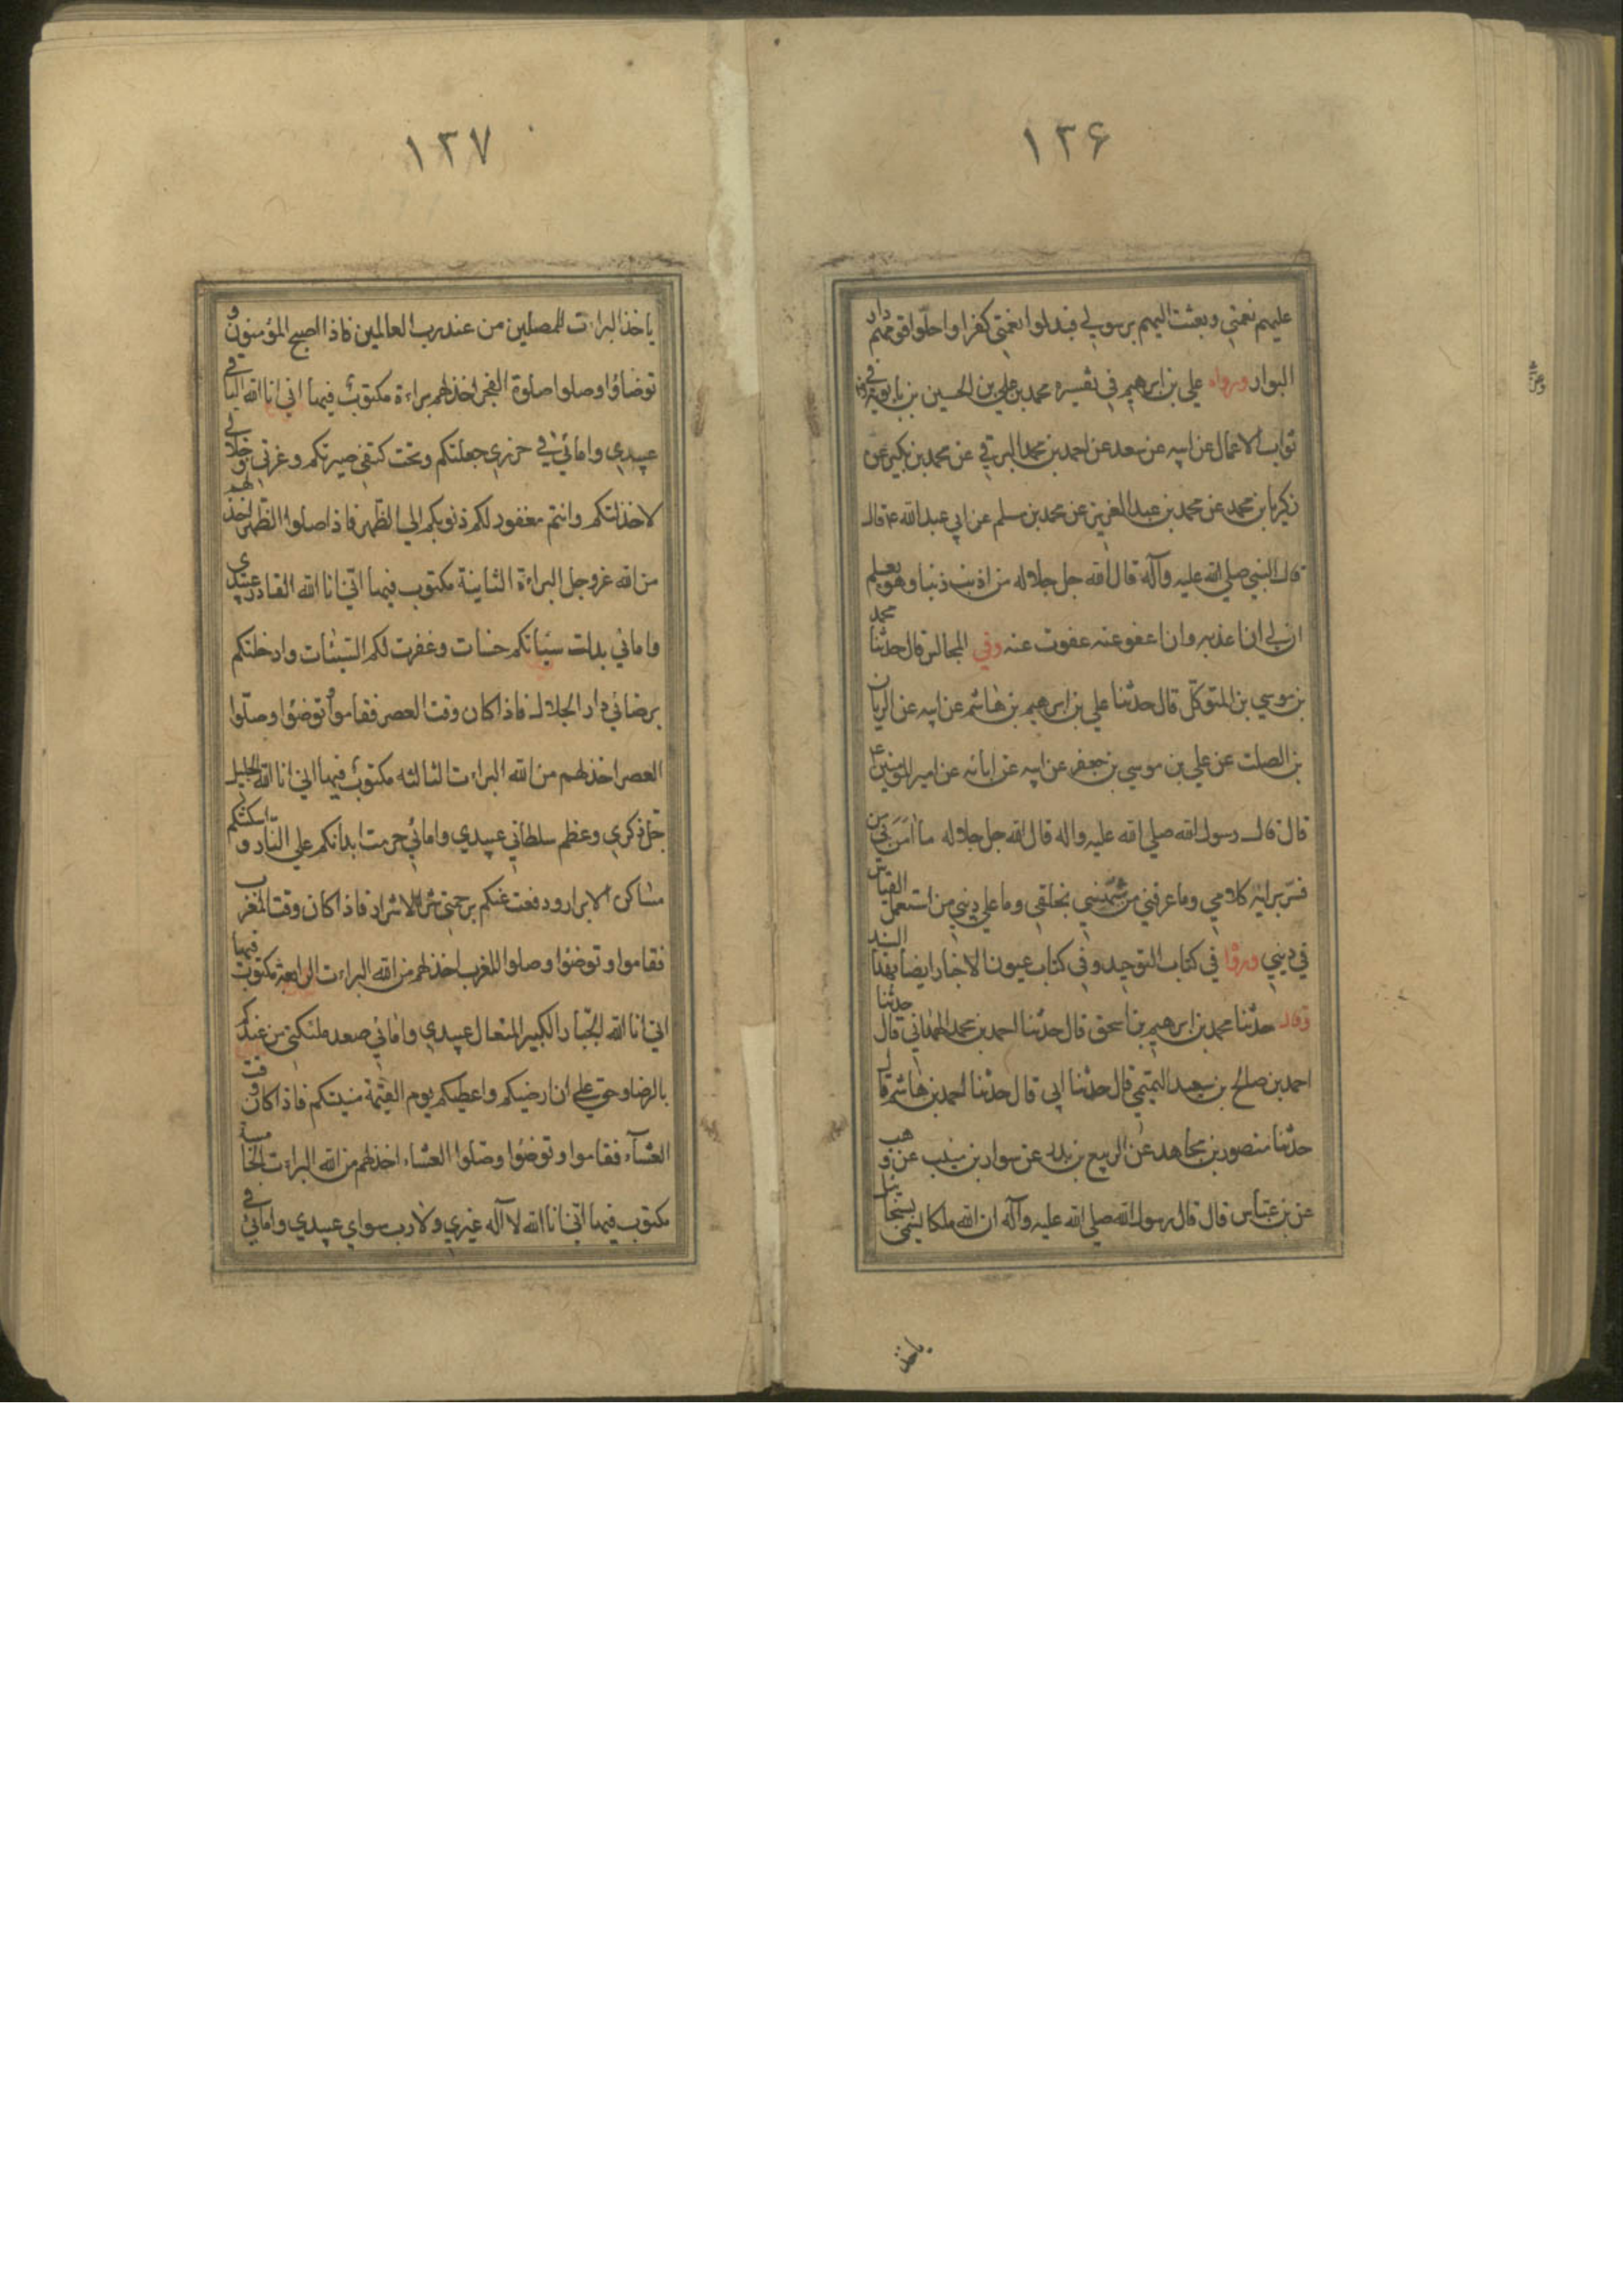 ۱۳۶
عليهم نعمتي وبعثت اليهم برسولي فبدلوا نعمتي كفرا واحلوا قومهم دار
البوار ورواه علي بن ابرهيم في تفسيره محمد بن علي بن الحسين بن بابويه في
ثواب الاعمال عن ابيه عن سعد عن احمد بن محمد البرقي عن محمد بن بكير عن
زكريا بن محمد عن محمد بن عبد العزيز عن محمد بن مسلم عن ابي عبد الله ع قال
قال النبي صلي الله عليه وآله قال الله جل جلاله من اذنب ذنبا وهو يعلم
ان لي ان اعذبه وان اعفو عنه عفوت عنه وفي المجالس قال حدثنا محمد
بن موسي بن المتوكل قال حدثنا علي بن ابرهيم بن هاشم عن ابيه عن الريان
بن الصلت عن علي بن موسي بن جعفر عن ابيه عن ابائه عن امير المؤمنين ع
قال قال رسول الله صلي الله عليه واله قال الله جل جلاله ما امن بي من
فسر برايه كلامي وما عرفني من شبهني بخلقي وما علي ديني من استعمل القياس
في ديني ورواه في كتاب التوحيد وفي كتاب عيون الاخبار ايضا بهذا السند
وقال حدثنا محمد بن ابرهيم بن اسحق قال حدثنا احمد بن محمد الهمداني قال حدثنا
احمد بن صالح بن سعيد التميمي قال حدثنا ابي قال حدثنا احمد بن هاشم قال
حدثنا منصور بن مجاهد عن الربيع بن بدر عن سوار بن منيب عن وهب
عن بن عباس قال قال رسول الله صلي الله عليه وآله ان لله ملكا يسمي سخائيل
ياخذ
۱۳۷
ياخذ البراءت للمصلين من عند رب العالمين فاذا اصبح المؤمنون و
توضاؤا وصلوا صلوة الفجر اخذ لهم براءة مكتوب فيها اني انا الله الباقي
عبيدي وامائي في حرزي جعلتكم وتحت كنفي صيرتكم وعزتي وجلالي
لاخذلتكم وانتم مغفور لكم ذنوبكم الي الظهر فاذا صلوا الظهر اخذ لهم
من الله عز وجل البراءة الثانية مكتوب فيها اني انا الله القادر عبيدي
وامائي بدلت سيئاتكم حسنات وغفرت لكم السيئات وادخلتكم
برضائي دار الجلال فاذا كان وقت العصر فقاموا وتوضؤا وصلوا
العصر اخذ لهم من الله البراءت الثالثه مكتوب فيها اني انا الله الجليل
جل ذكري وعظم سلطاني عبيدي وامائي حرمت ابدانكم علي النار و اسكنتكم
مساكن الابرار ودفعت عنكم برحمتي شر الاشرار فاذا كان وقت المغرب
فقاموا وتوضؤا وصلوا المغرب اخذ لهم من الله البراءت الرابعة مكتوب فيها
اني انا الله الجبار الكبير المتعال عبيدي وامائي صعد ملئكتي من عندكم
بالرضا وحق علي ان ارضيكم واعطيكم يوم القيمة منيتكم فاذا كان وقت
العشآء فقاموا وتوضؤا وصلوا العشاء اخذ لهم من الله البراءت الخامسة
مكتوب فيها اني انا الله لا اله غيري ولا رب سواي عبيدي وامائي في